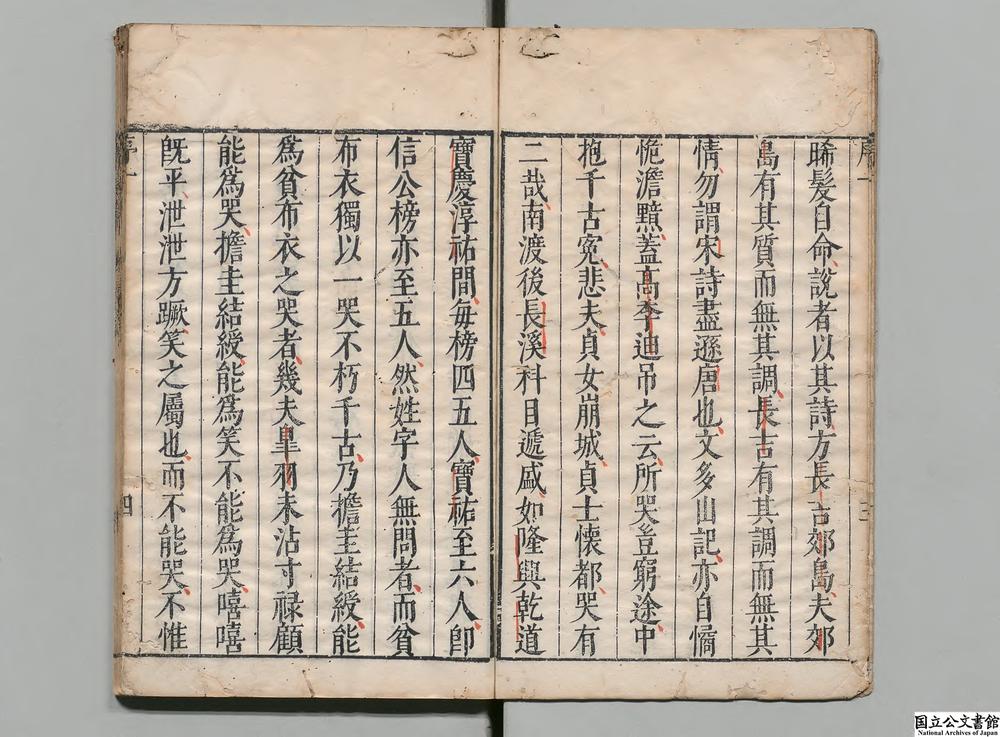 晞髮自命說者以其詩方長吉郊島夫郊
島有其質而無其調長吉有其調而無其
情勿謂宋詩盡遜唐也文多山記亦自憰
恑澹黯蓋高季迪吊之云所哭豈窮途中
抱千古冤悲夫貞女崩城貞士懷都哭有
二哉南渡後長溪科目遞盛如隆興乾道
寶慶淳祐間每榜四五人寶祐至六人卽
信公榜亦至五人然姓字人無問者而貧
布衣獨以一哭不朽千古乃檐圭結綬能
爲貧布衣之哭者幾夫皐羽未沾寸祿顧
能爲哭檐圭結綬能爲笑不能爲哭嘻嘻
旣平泄泄方蹶笑之屬也而不能哭不惟
序一
四
国立公文書館
National Archives of Japan